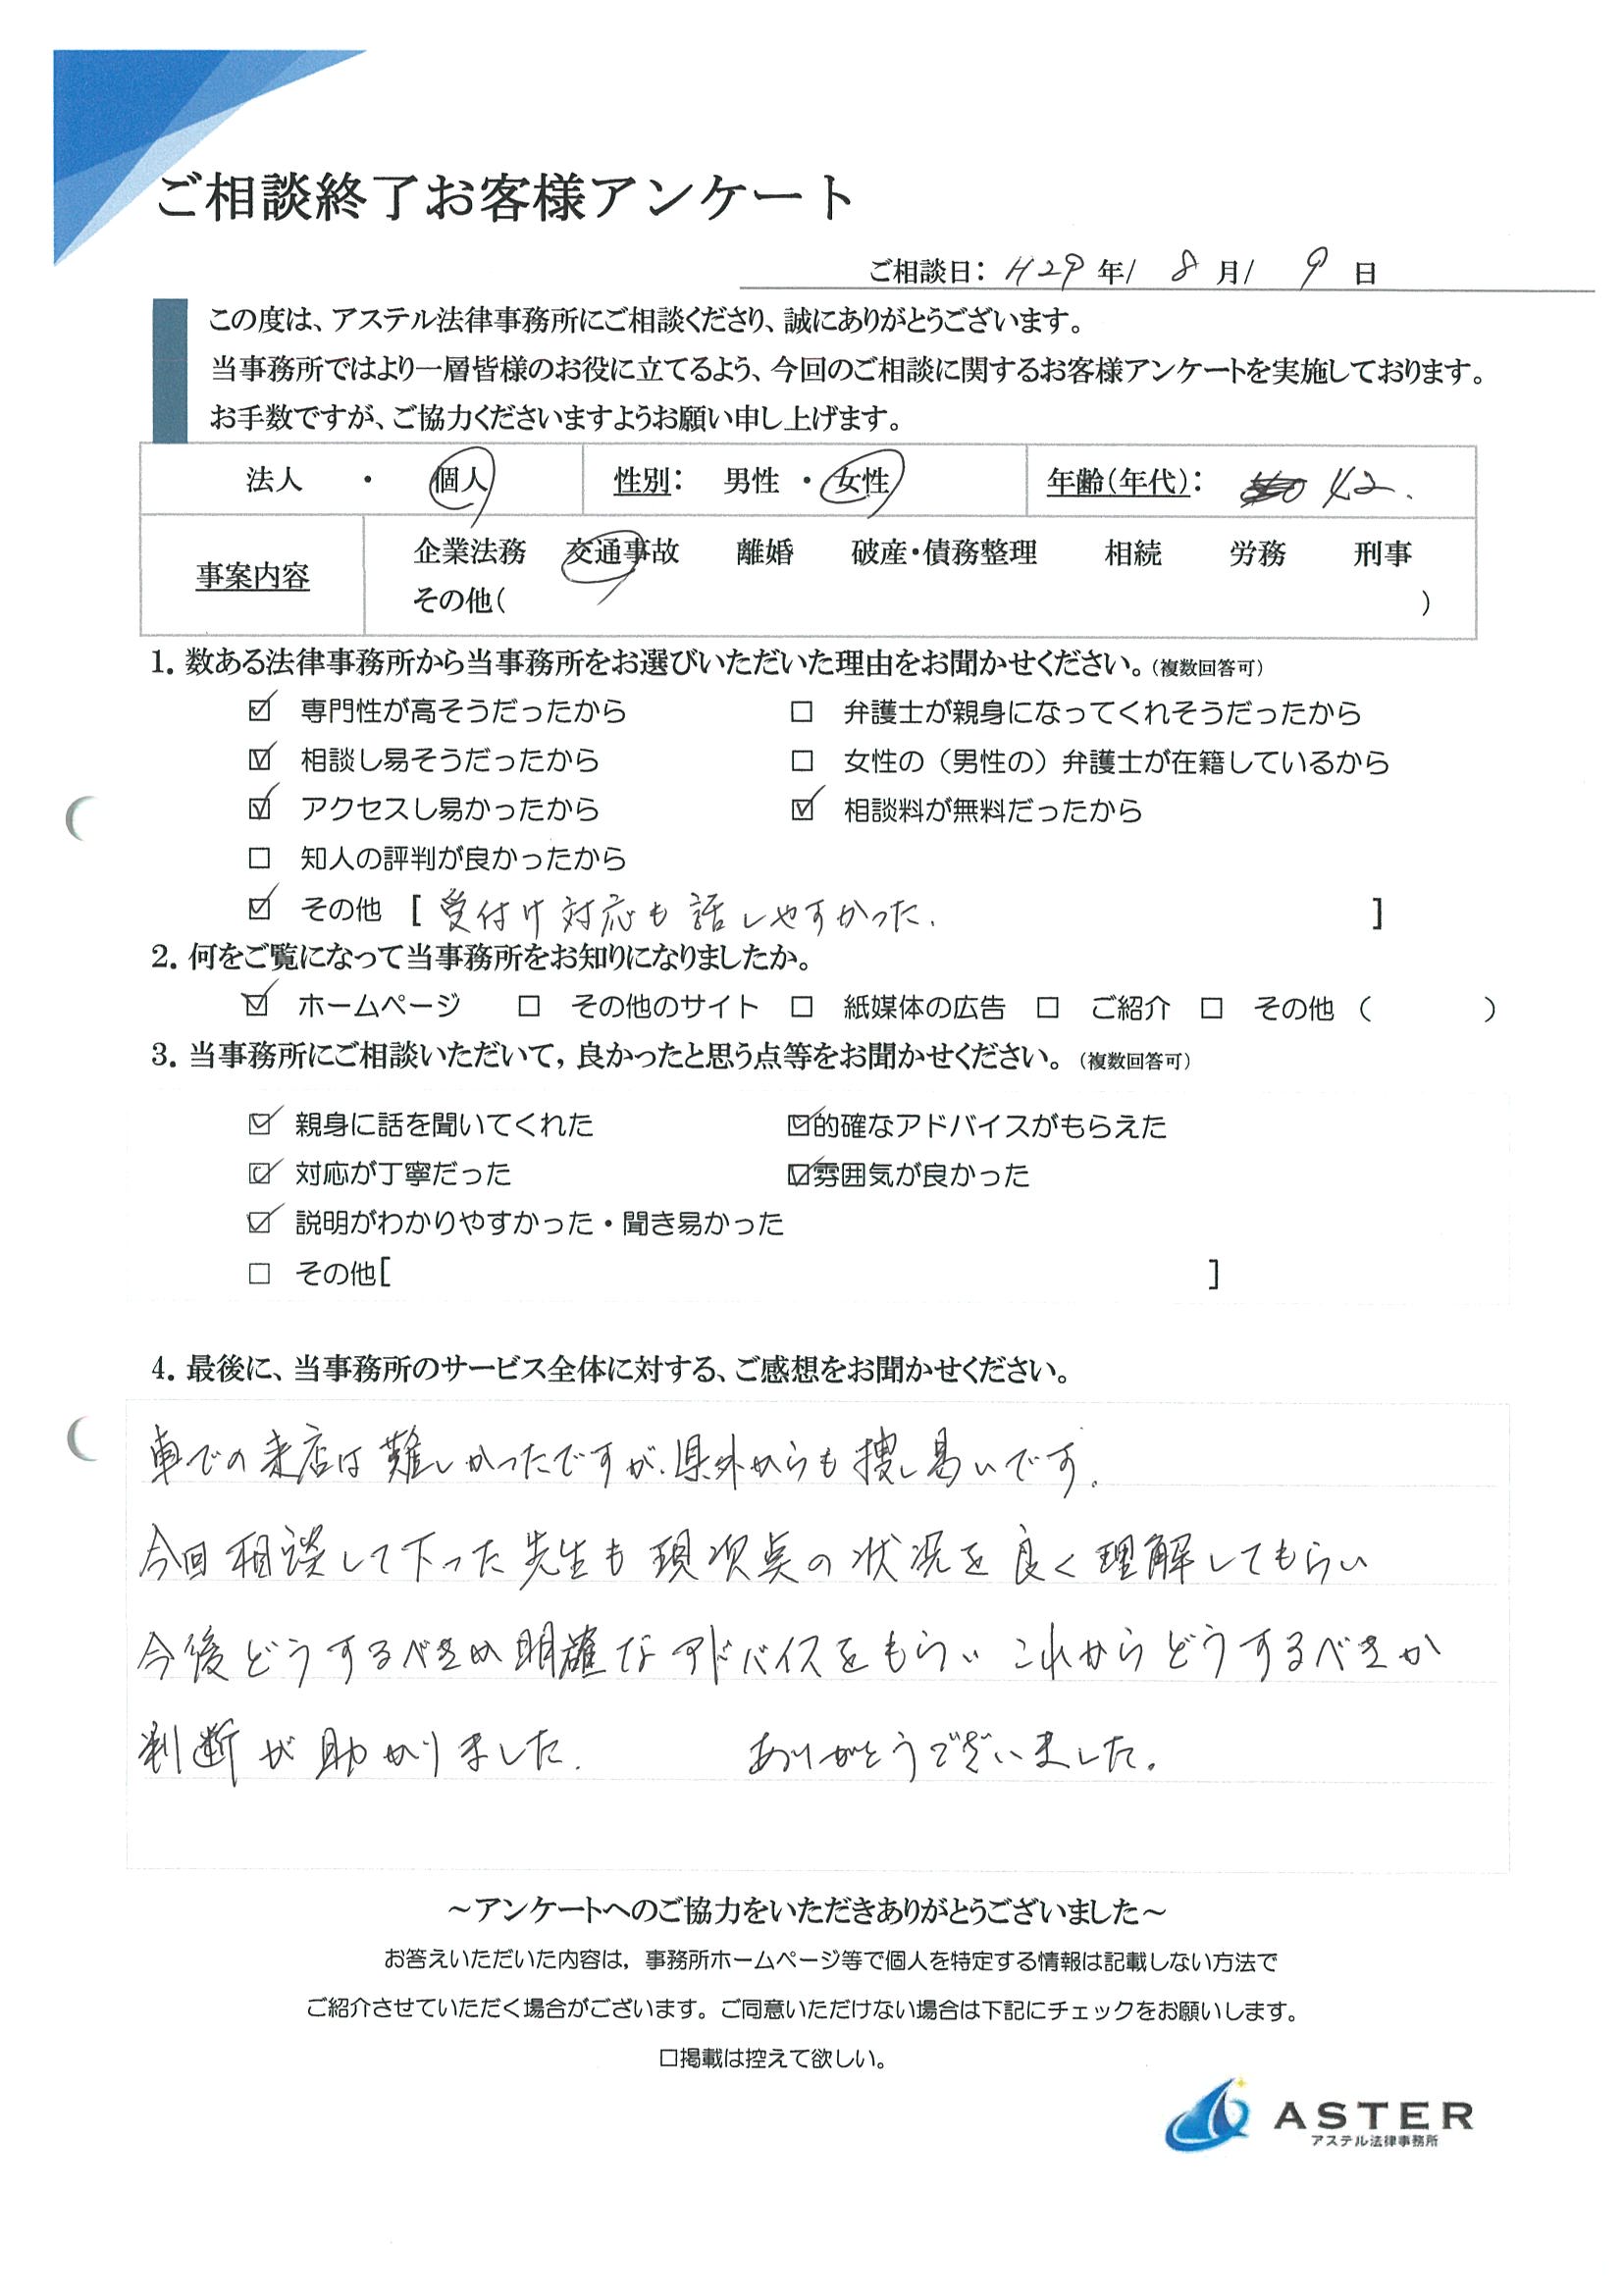 ご相談終了お客様アンケート
ご相談日: H29 年/ 8 月/ 9 日
この度は、アステル法律事務所にご相談くださり、誠にありがとうございます。
当事務所ではより一層皆様のお役に立てるよう、今回のご相談に関するお客様アンケートを実施しております。
お手数ですが、ご協力くださいますようお願い申し上げます。
法人 ・ 個人 性別: 男性 ・ 女性 年齢(年代): 42.
企業法務 交通事故 離婚 破産・債務整理 相続 労務 刑事
事案内容
その他( )
1. 数ある法律事務所から当事務所をお選びいただいた理由をお聞かせください。(複数回答可)
☑ 専門性が高そうだったから □ 弁護士が親身になってくれそうだったから
☑ 相談し易そうだったから □ 女性の（男性の）弁護士が在籍しているから
☑ アクセスし易かったから ☑ 相談料が無料だったから
□ 知人の評判が良かったから
☑ その他 [ 受付け対応も話しやすかった. ]
2. 何をご覧になって当事務所をお知りになりましたか。
☑ ホームページ □ その他のサイト □ 紙媒体の広告 □ ご紹介 □ その他 ( )
3. 当事務所にご相談いただいて, 良かったと思う点等をお聞かせください。(複数回答可)
☑ 親身に話を聞いてくれた ☑的確なアドバイスがもらえた
☑ 対応が丁寧だった ☑雰囲気が良かった
☑ 説明がわかりやすかった・聞き易かった
□ その他[ ]
4. 最後に、当事務所のサービス全体に対する、ご感想をお聞かせください。
車での来店は難しかったですが、県外からも捜し易いです.
今回相談して下った先生も現次点の状況を良く理解してもらい
今後どうするべきか明確なアドバイスをもらい これからどうするべきか
判断が助かりました. ありがとうございました.
～アンケートへのご協力をいただきありがとうございました～
お答えいただいた内容は, 事務所ホームページ等で個人を特定する情報は記載しない方法で
ご紹介させていただく場合がございます。ご同意いただけない場合は下記にチェックをお願いします。
□掲載は控えて欲しい。
ASTER
アステル法律事務所